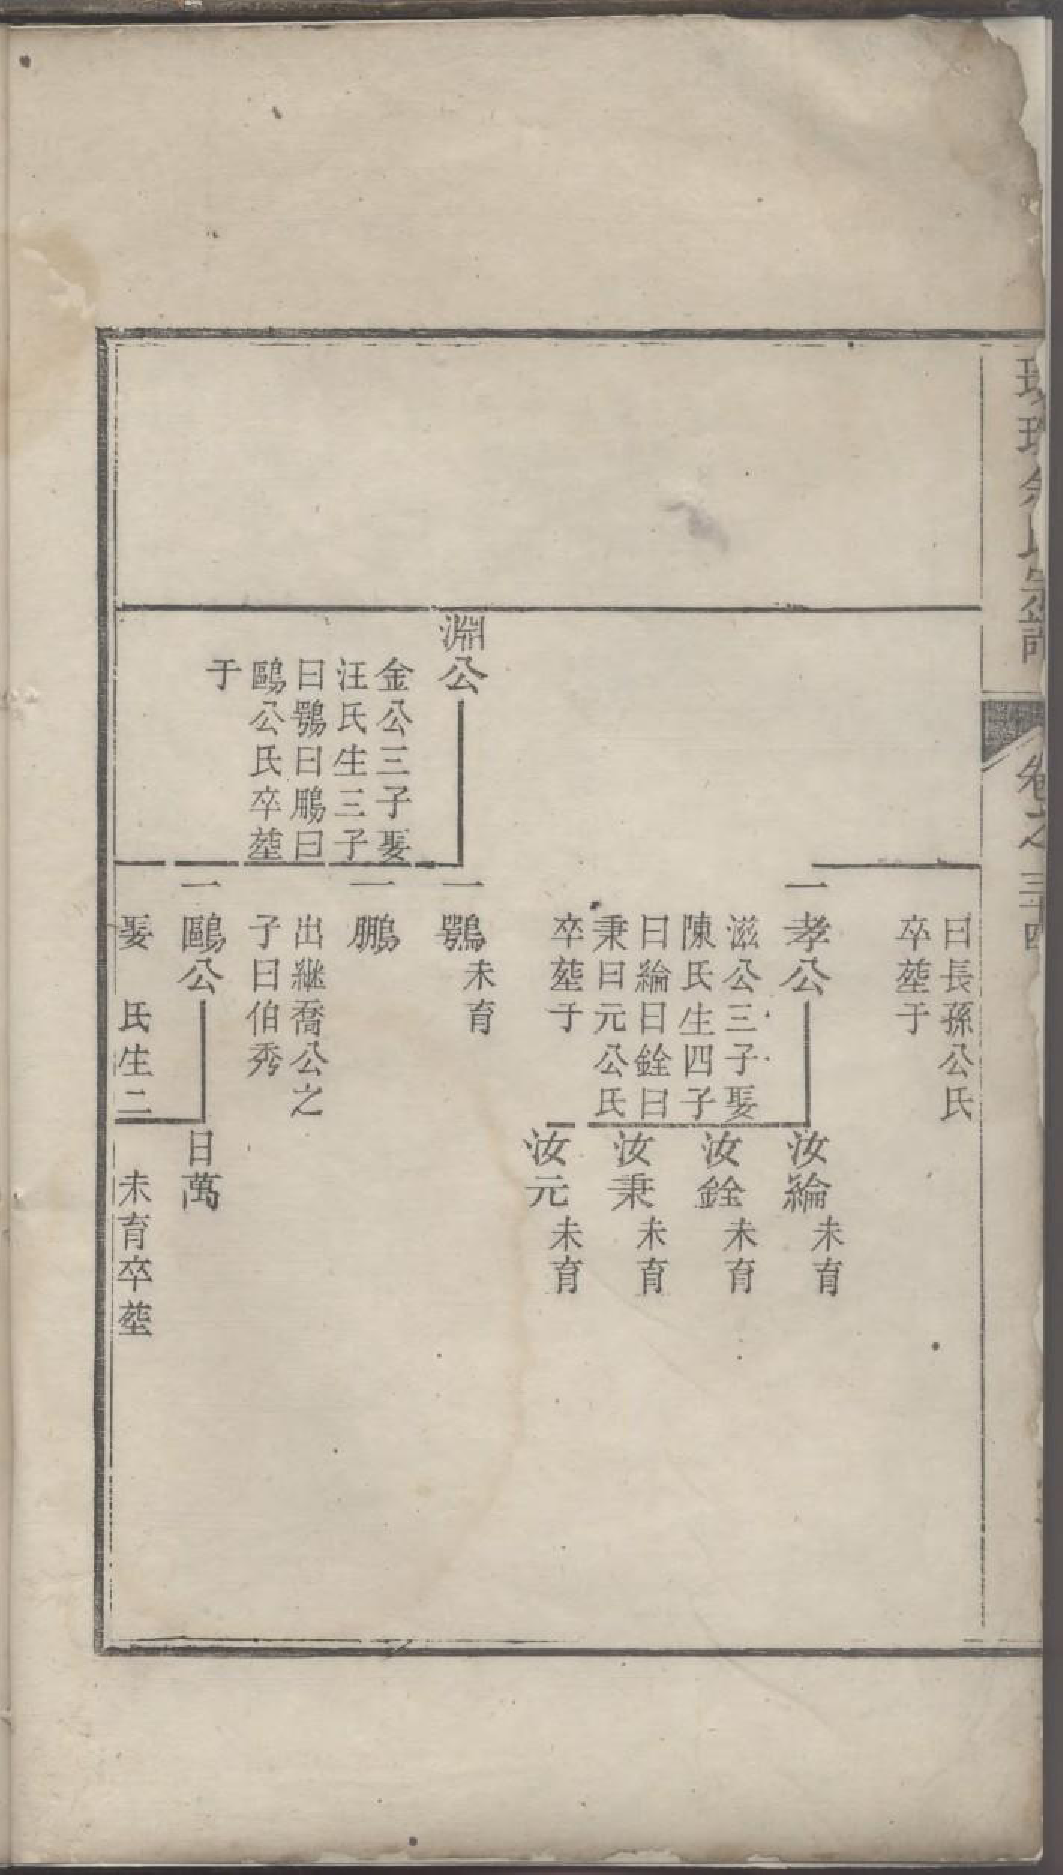 卷之三十四
曰長孫公氏
卒塟于
一孝公
滋公三子娶
陳氏生四子
曰綸曰銓曰
秉曰元公氏
卒塟于
汝綸未育
汝銓未育
汝秉未育
汝元未育
淵公
金公三子娶
汪氏生三子
曰鶚曰鵬曰
鷗公氏卒塟
于
一鶚未育
一鵬
出繼喬公之
子曰伯秀
一鷗公
娶 氏生二
曰萬
未育卒塟